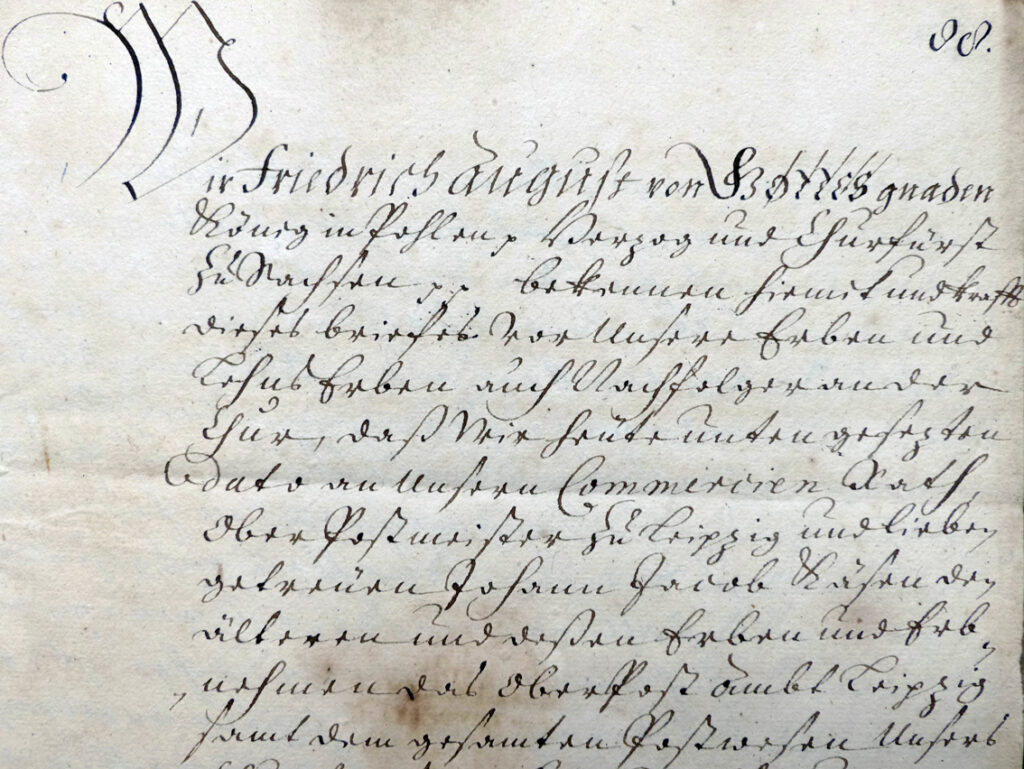 88.
Wir Friedrich August von Gottes gnaden
König in Pohlen p Herzog und Churfürst
zu Sachsen p. p. bekennen hiemit und krafft
dieses briefes vor Unsere Erben und
Lehns Erben auch Nachfolger an der
Chur, daß Wir heüte unten gesezten
dato an Unsern Commercien Rath,
Ober Postmeister zu Leipzig und lieben
getreüen Johann Jacob Käsen den
älteren und deßen Erben und Erb-
nehmen das Ober Post ambt Leipzig
samt dem gesamten Postwesen Unsers